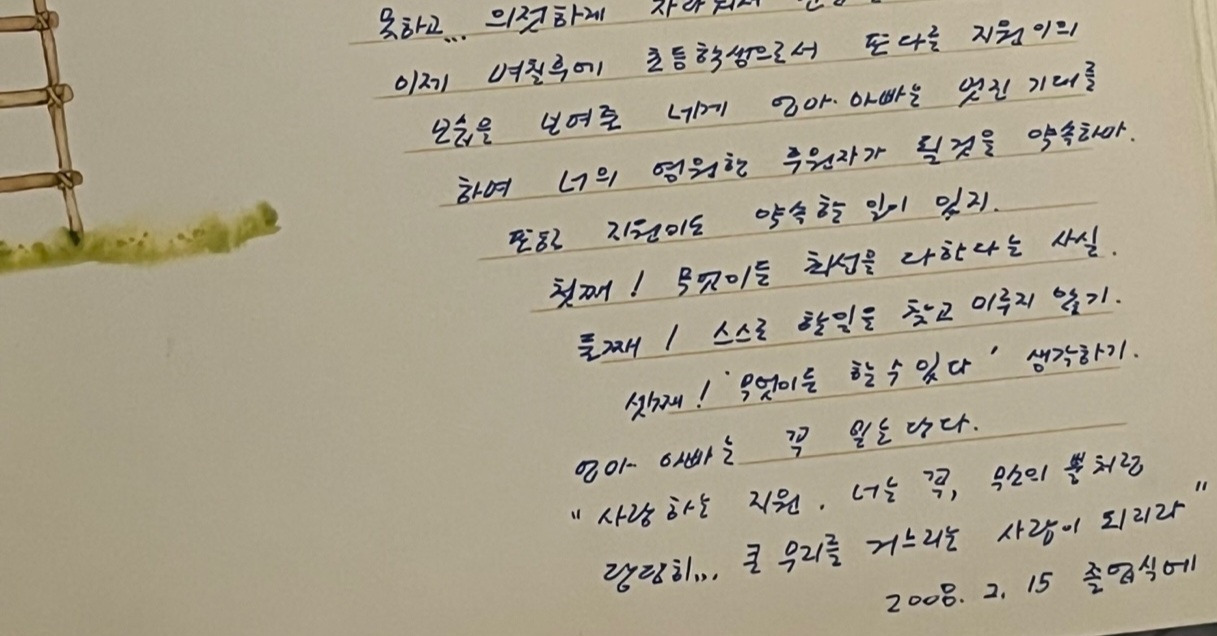 못하고... 의젓하게 자라줘서
이제 며칠후에 초등학생으로서 또다른 지원이의
모습을 보여줄 네게 엄마·아빠는 멋진 기대를
하며 너의 영원한 후원자가 될것을 약속하마.
또한 지원이도 약속할 일이 있지.
첫째! 무엇이든 최선을 다한다는 사실.
둘째! 스스로 할일을 찾고 미루지 않기.
셋째! '무엇이든 할 수 있다' 생각하기.
엄마·아빠는 꼭 믿는단다.
"사랑하는 지원. 너는 꼭, 무소의 뿔처럼
당당히... 큰 무리를 거느리는 사람이 되리라"
2008. 2. 15 졸업식에